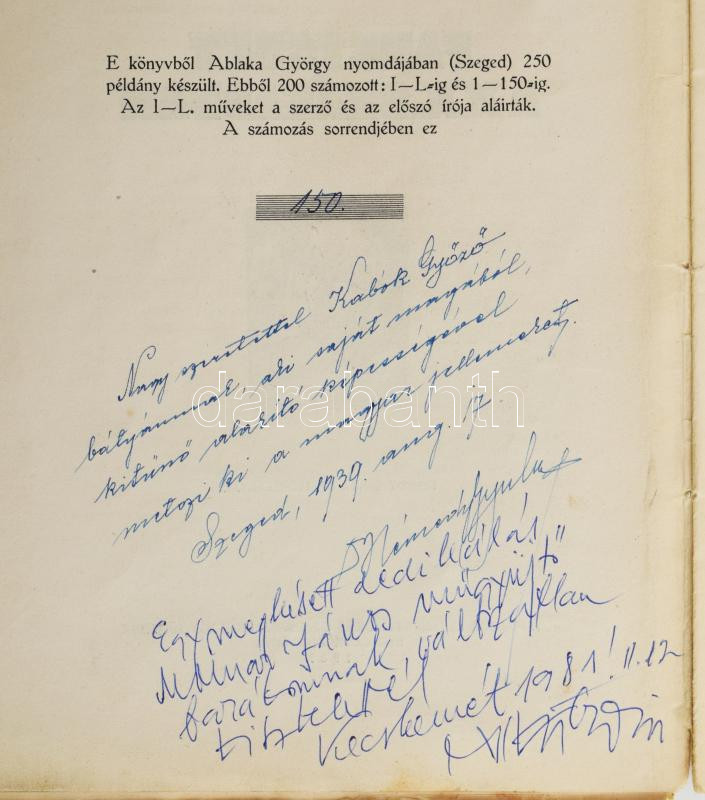 E könyvből Ablaka György nyomdájában (Szeged) 250
példány készült. Ebből 200 számozott: I—L-ig és 1—150-ig.
Az I—L. műveket a szerző és az előszó írója aláirták.
A számozás sorrendjében ez
150.
Nagy szeretettel Kabók Győző
bátyámnak, aki saját magából,
kitünő alakító képességével
metszi ki a magyar jellemeket.
Szeged, 1939. aug. 17.
darabanth
Egy megkésett dedikálás
Molnár János műgyüjtő
barátomnak változatlan
tisztelettel
Kecskemét 1981. II. 12